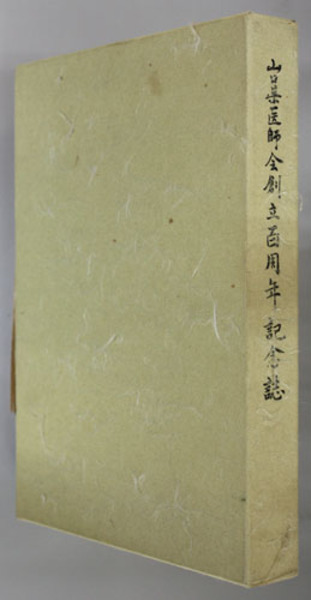 山口県医師会創立百周年記念誌